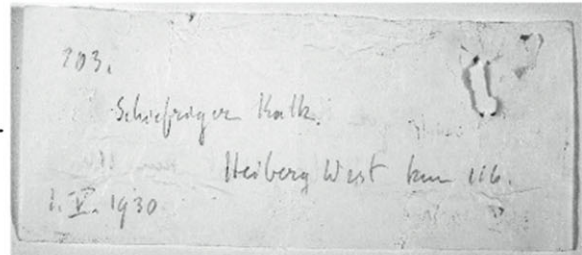 203.
Schiefriger Kalk.
Heiberg West km 116.
1. V. 1930